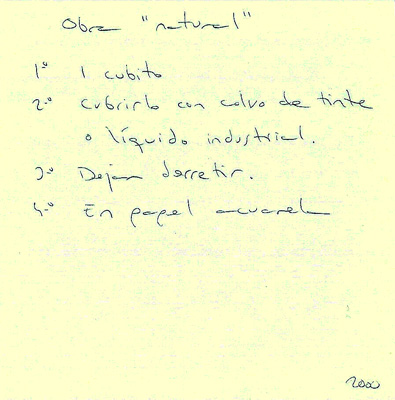 Obra "natural"
1º 1 cubito
2º cubrirlo con colvo de tinte
o líquido industrial.
3º Dejar derretir.
4º En papel acuarela
2000